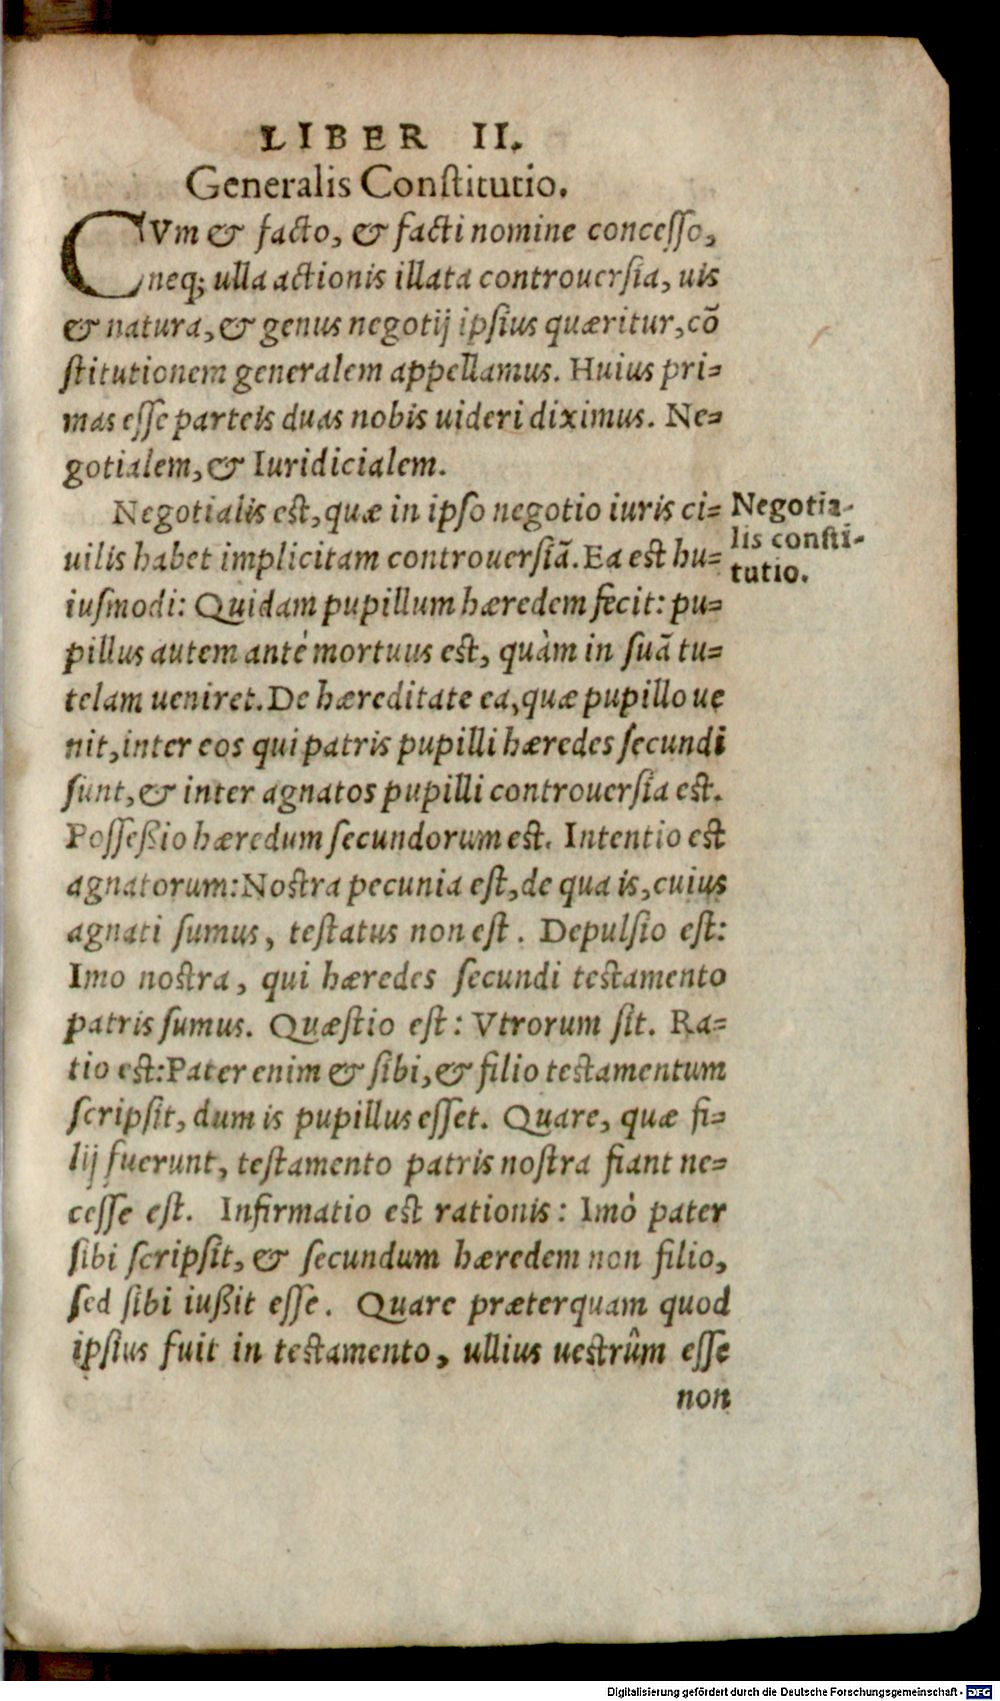 LIBER II.
Generalis Constitutio.
CVm & facto, & facti nomine concesso,
neq; ulla actionis illata controuersia, uis
& natura, & genus negotij ipsius quæritur, cõ
stitutionem generalem appellamus. Huius pri-
mas esse parteis duas nobis uideri diximus. Ne-
gotialem, & Iuridicialem.
Negotialis est, quæ in ipso negotio iuris ci-
uilis habet implicitam controuersiã. Ea est hu-
iusmodi: Quidam pupillum hæredem fecit: pu-
pillus autem antè mortuus est, quàm in suã tu-
telam ueniret. De hæreditate ea, quæ pupillo ue
nit, inter eos qui patris pupilli hæredes secundi
sunt, & inter agnatos pupilli controuersia est.
Posseßio hæredum secundorum est. Intentio est
agnatorum: Nostra pecunia est, de qua is, cuius
agnati sumus, testatus non est. Depulsio est:
Imo nostra, qui hæredes secundi testamento
patris sumus. Quæstio est: Vtrorum sit. Ra-
tio est: Pater enim & sibi, & filio testamentum
scripsit, dum is pupillus esset. Quare, quæ fi-
lij fuerunt, testamento patris nostra fiant ne-
cesse est. Infirmatio est rationis: Imò pater
sibi scripsit, & secundum hæredem non filio,
sed sibi iußit esse. Quare præterquam quod
ipsius fuit in testamento, ullius uestrûm esse
non
Negotia-
lis consti-
tutio.
Digitalisierung gefördert durch die Deutsche Forschungsgemeinschaft - DFG